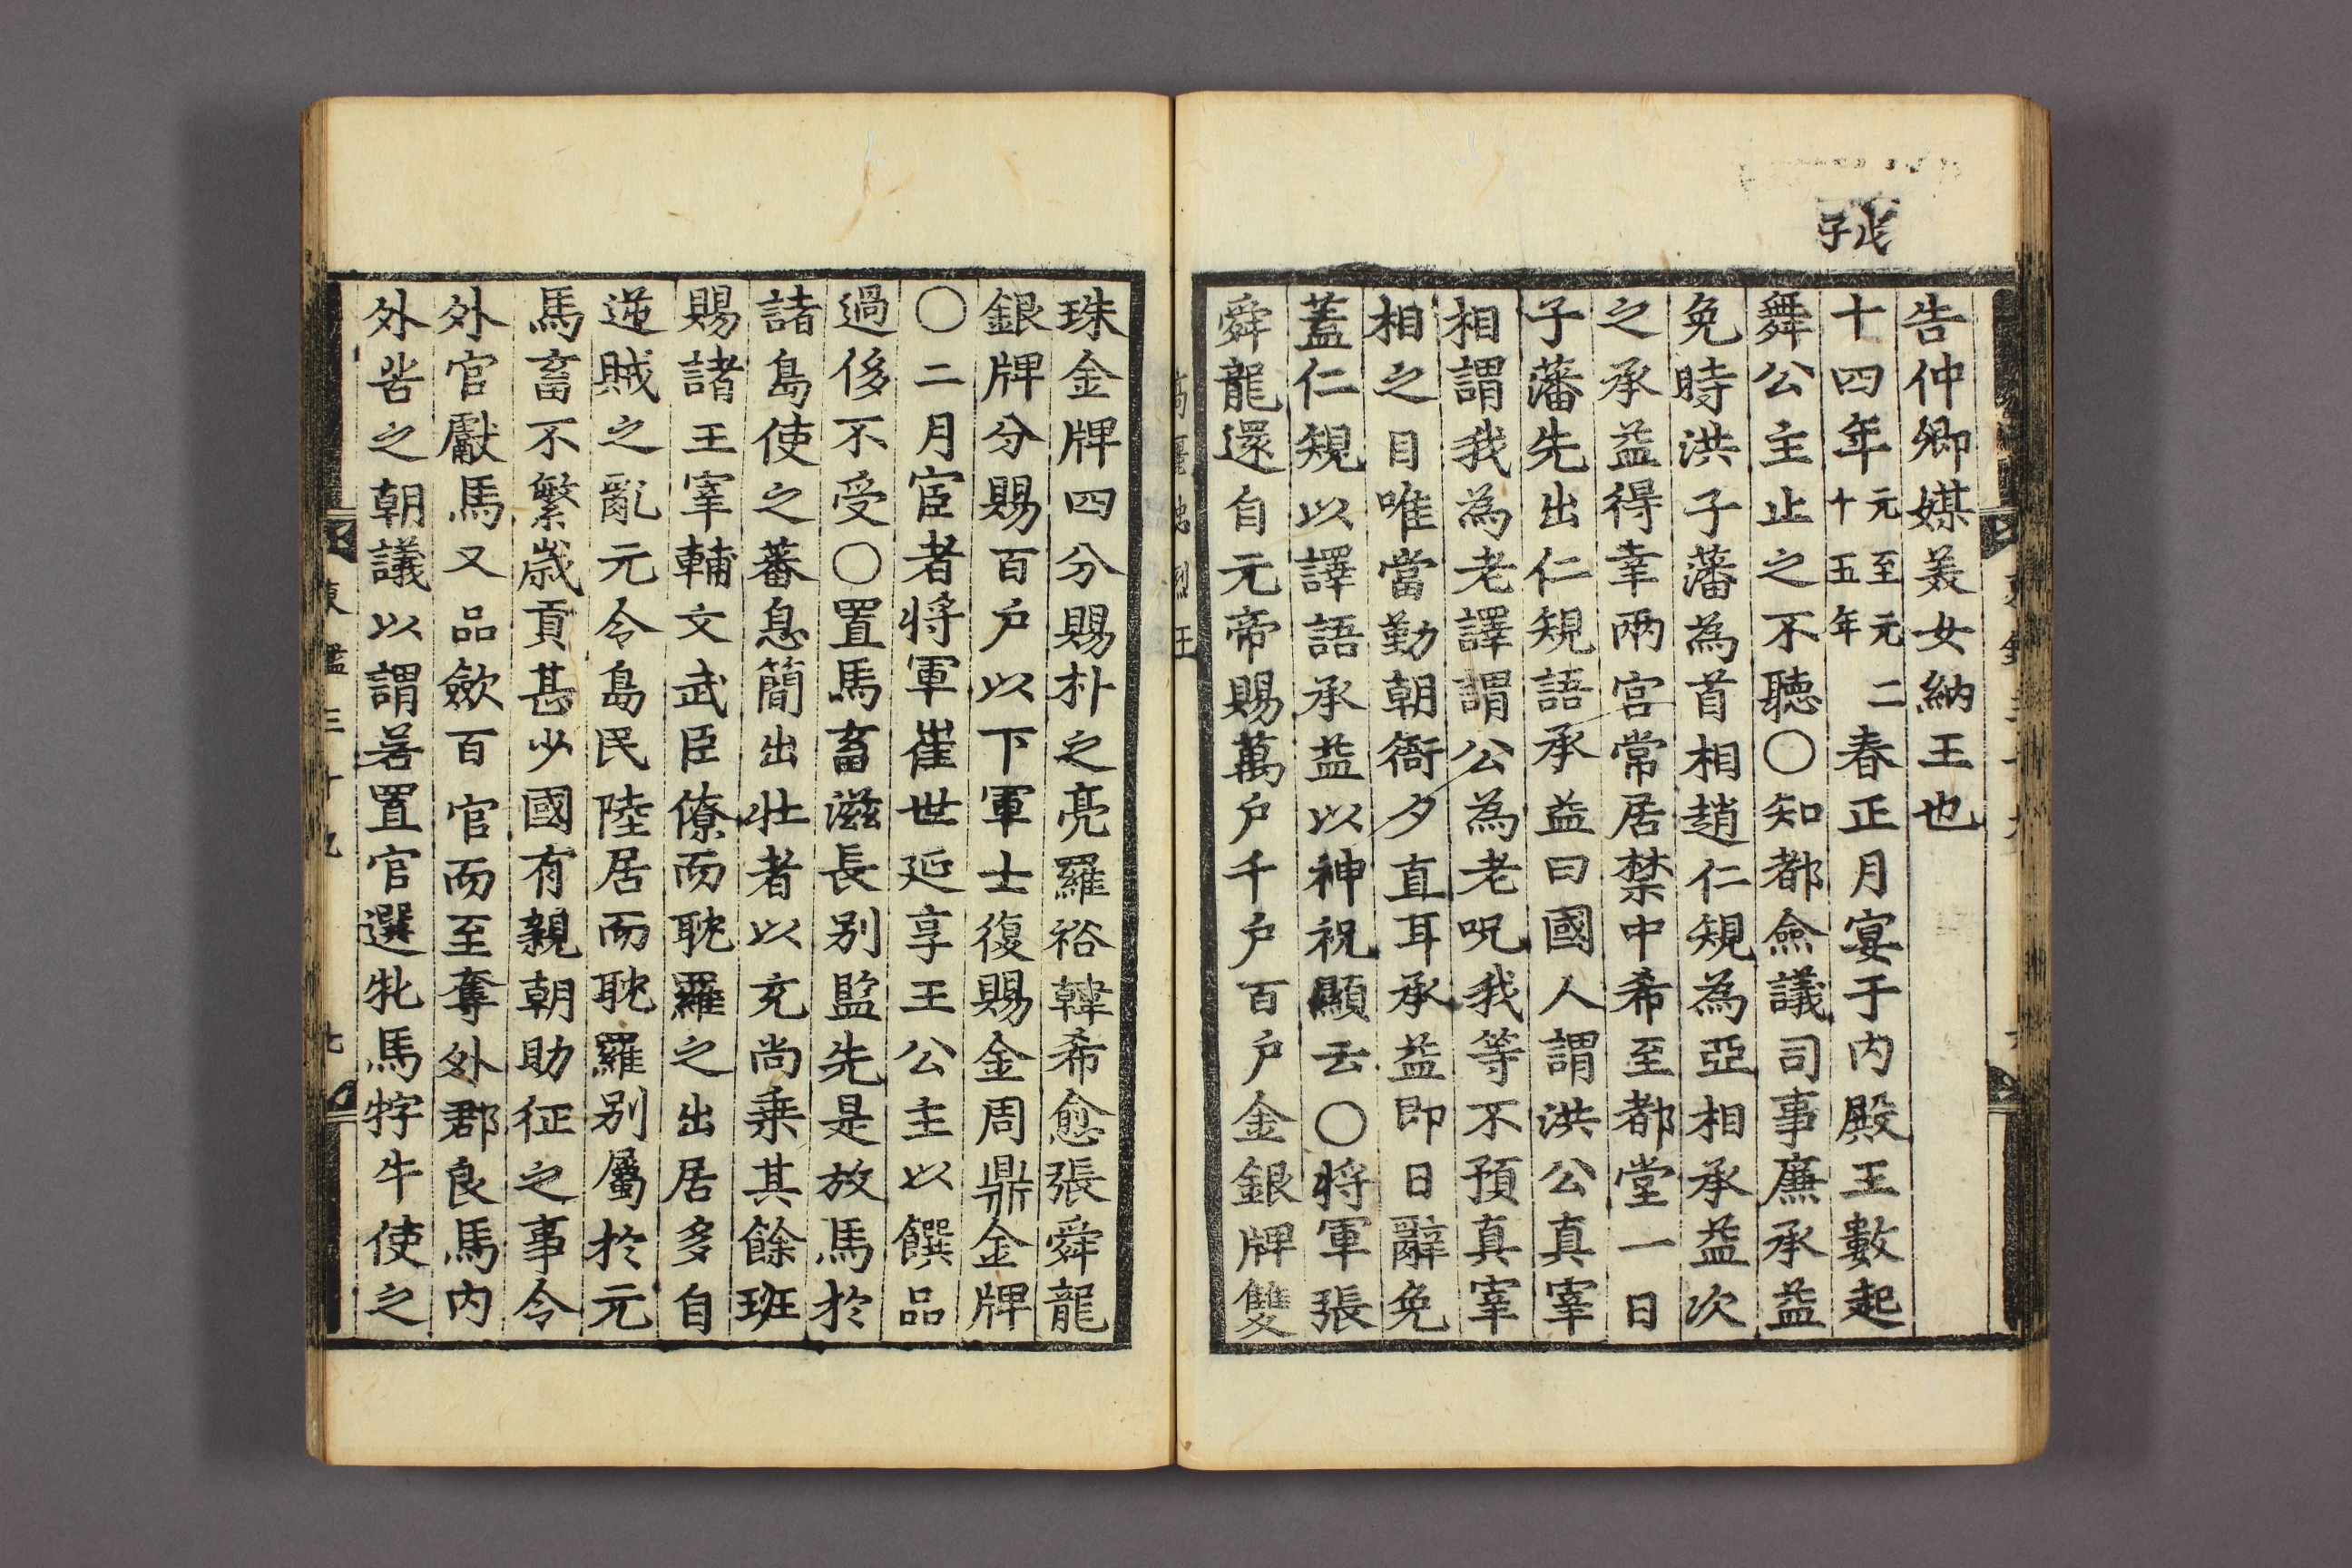 戊子
告仲卿媒美女納王也
十四年元至元二十五年春正月宴于内殿王數起
舞公主止之不聽〇知都僉議司事廉承益
免時洪子藩為首相趙仁規為亞相承益次
之承益得幸兩宮常居禁中希至都堂一日
子藩先出仁規語承益曰國人謂洪公真宰
相謂我為老譯謂公為老呪我等不預真宰
相之目唯當勤朝衙夕直耳承益即日辭免
蓋仁規以譯語承益以神祝顯云〇將軍張
舜龍還自元帝賜萬户千户百户金銀牌雙
珠金牌四分賜朴之亮羅裕韓希愈張舜龍
銀牌分賜百户以下軍士復賜金周鼎金牌
〇二月宦者將軍崔世延享王公主以饌品
過侈不受〇置馬畜滋長别監先是放馬於
諸島使之蕃息簡出壯者以充尚乗其餘班
賜諸王宰輔文武臣僚而耽羅之出居多自
逆賊之亂元令島民陸居而耽羅别屬於元
馬畜不繁歲貢甚少國有親朝助征之事令
外官獻馬又品斂百官而至奪外郡良馬内
外苦之朝議以謂若置官選牝馬牸牛使之
東鑑三十九
七